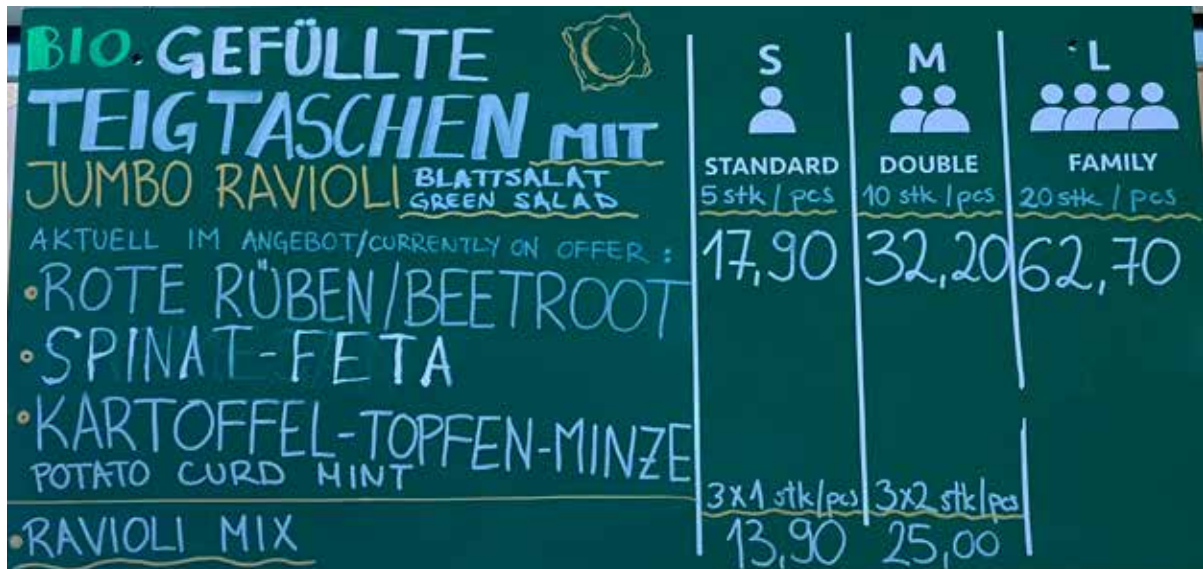 BIO. GEFÜLLTE
TEIGTASCHEN MIT
JUMBO RAVIOLI BLATTSALAT
GREEN SALAD
AKTUELL IM ANGEBOT/CURRENTLY ON OFFER :
• ROTE RÜBEN/BEETROOT
• SPINAT-FETA
• KARTOFFEL-TOPFEN-MINZE
POTATO CURD MINT
• RAVIOLI MIX
S M L
STANDARD DOUBLE FAMILY
5 stk / pcs 10 stk / pcs 20 stk / pcs
17,90 32,20 62,70
3x1 stk/pcs 3x2 stk/pcs
13,90 25,00